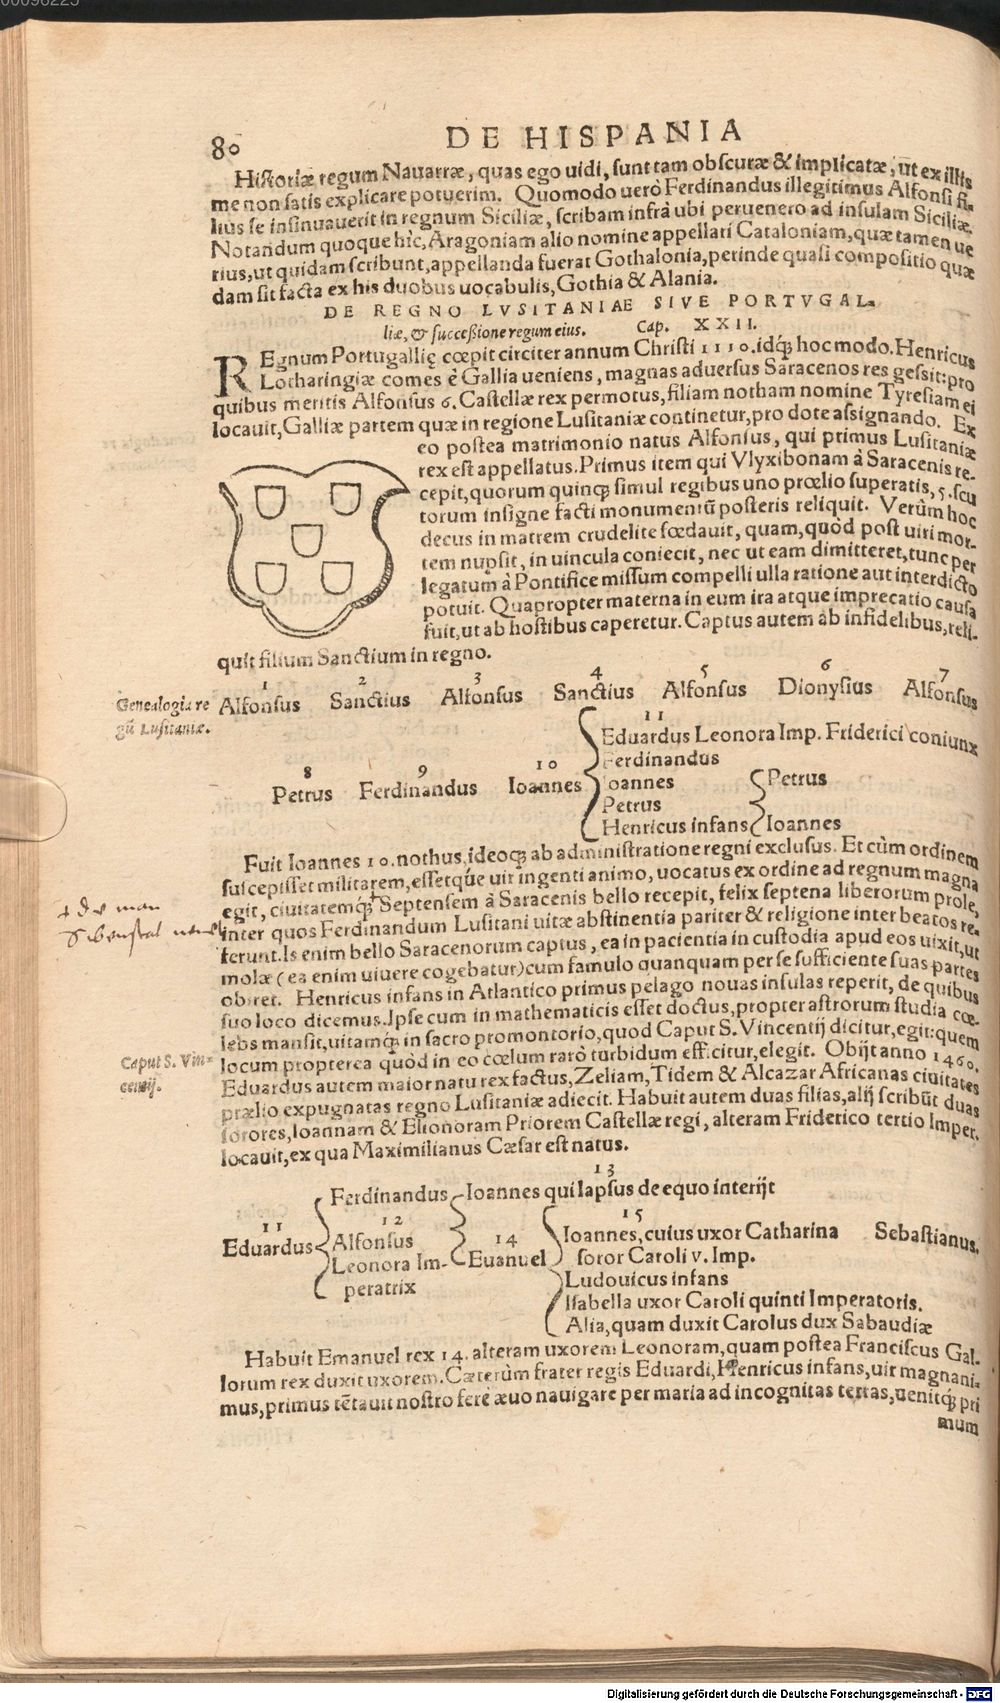 80 DE HISPANIA
Historiæ regum Nauarræ, quas ego uidi, sunt tam obscuræ & implicatæ, ut ex illis
me non satis explicare potuerim. Quomodo uerò Ferdinandus illegitimus Alfonsi fi-
lius se insinuauerit in regnum Siciliæ, scribam infrà ubi peruenero ad insulam Siciliæ.
Notandum quoque hîc, Aragoniam alio nomine appellari Cataloniam, quæ tamen ue
rius, ut quidam scribunt, appellanda fuerat Gothalonia, perinde quasi compositio quæ
dam sit facta ex his duobus uocabulis, Gothia & Alania.
DE REGNO LVSITANIAE SIVE PORTVGAL-
liæ, & successione regum eius. Cap. XXII.
REgnum Portugallię cœpit circiter annum Christi 1110. idq́; hoc modo. Henricus
Lotharingiæ comes è Gallia ueniens, magnas aduersus Saracenos res gessit: pro
quibus meritis Alfonsus 6. Castellæ rex permotus, filiam notham nomine Tyresiam ei
locauit, Galliæ partem quæ in regione Lusitaniæ continetur, pro dote assignando. Ex
eo postea matrimonio natus Alfonsus, qui primus Lusitaniæ
rex est appellatus. Primus item qui Vlyxibonam à Saracenis re-
cepit, quorum quinq; simul regibus uno prœlio superatis, 5. scu
torum insigne facti monumentū posteris reliquit. Verùm hoc
decus in matrem crudelite fœdauit, quam, quòd post uiri mor-
tem nupsit, in uincula coniecit, nec ut eam dimitteret, tunc per
legatum à Pontifice missum compelli ulla ratione aut interdicto
potuit. Quapropter materna in eum ira atque imprecatio causa
fuit, ut ab hostibus caperetur. Captus autem ab infidelibus, reli-
quit filium Sanctium in regno.
1 2 3 4 5 6 7
Genealogia re Alfonsus Sanctius Alfonsus Sanctius Alfonsus Dionysius Alfonsus
gū Lusitaniæ.
11
Eduardus Leonora Imp. Friderici coniunx
Ferdinandus
8 9 10
Petrus Ferdinandus Ioannes Ioannes Petrus
Petrus
Henricus infans Ioannes
Fuit Ioannes 10. nothus, ideoq; ab administratione regni exclusus. Et cùm ordinem
suscepisset militarem, essetq́ue uir ingenti animo, uocatus ex ordine ad regnum magna
egit, ciuitatemq́; Septensem à Saracenis bello recepit, felix septena liberorum prole,
inter quos Ferdinandum Lusitani uitæ abstinentia pariter & religione inter beatos re-
ferunt. Is enim bello Saracenorum captus, ea in pacientia in custodia apud eos uixit, ut
molæ (ea enim uiuere cogebatur) cum famulo quanquam per se sufficiente suas partes
obiret. Henricus infans in Atlantico primus pelago nouas insulas reperit, de quibus
suo loco dicemus. Ipse cum in mathematicis esset doctus, propter astrorum studia cœ-
lebs mansit, uitamq́; in sacro promontorio, quod Caput S. Vincentij dicitur, egit: quem
Caput S. Vin-
centij.
locum propterea quòd in eo cœlum rarò turbidum efficitur, elegit. Obijt anno 1460.
Eduardus autem maior natu rex factus, Zeliam, Tidem & Alcazar Africanas ciuitates
prælio expugnatas regno Lusitaniæ adiecit. Habuit autem duas filias, alij scribūt duas
sorores, Ioannam & Elionoram Priorem Castellæ regi, alteram Friderico tertio Imper.
locauit, ex qua Maximilianus Cæsar est natus.
13
Ferdinandus Ioannes qui lapsus de equo interijt
11 12 14 15
Eduardus Alfonsus Euanuel Ioannes, cuius uxor Catharina Sebastianus.
soror Caroli v. Imp.
Leonora Im-
peratrix
Ludouicus infans
Isabella uxor Caroli quinti Imperatoris.
Alia, quam duxit Carolus dux Sabaudiæ
Habuit Emanuel rex 14. alteram uxorem Leonoram, quam postea Franciscus Gal-
lorum rex duxit uxorem. Cæterùm frater regis Eduardi, Henricus infans, uir magnani-
mus, primus tētauit nostro ferè æuo nauigare per maria ad incognitas terras, uenitq́; pri
mum
Digitalisierung gefördert durch die Deutsche Forschungsgemeinschaft - DFG